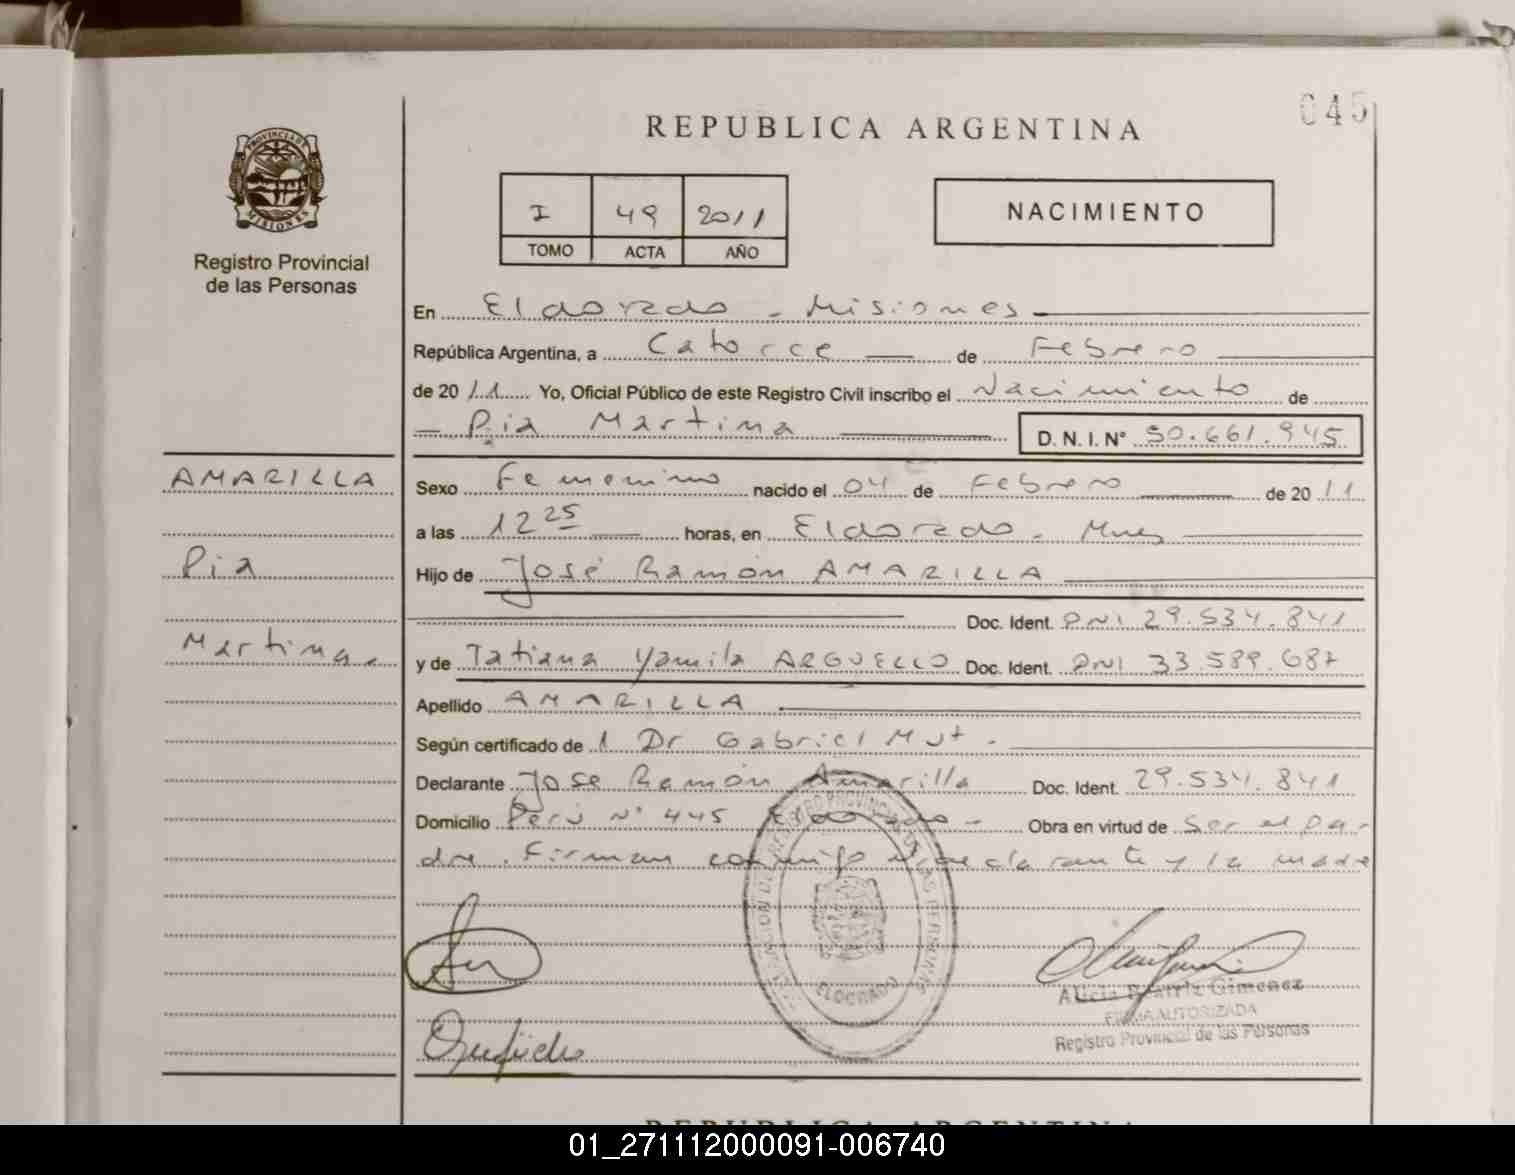 045
REPUBLICA ARGENTINA
PROVINCIA DE MISIONES
Registro Provincial
de las Personas
I 49 2011
TOMO ACTA AÑO
NACIMIENTO
En Eldorado - Misiones
República Argentina, a Catorce de Febrero
de 2011 Yo, Oficial Público de este Registro Civil inscribo el Nacimiento de
Pia Martina D. N. I. N° 50.661.945
AMARILLA
Pia
Martina
Sexo Femenino nacido el 04 de Febrero de 2011
a las 12 25 horas, en Eldorado - Mnes
Hijo de José Ramón AMARILLA
Doc. Ident. DNI 29.534.841
y de Tatiana Yamila ARGUELLO Doc. Ident. DNI 33.589.687
Apellido AMARILLA
Según certificado de 1 Dr Gabriel Mut -
Declarante José Ramón Amarilla Doc. Ident. 29.534.841
Domicilio Perú N° 445 Eldorado - Obra en virtud de ser el pa-
dre. Firman conjunto declarante y la madre
ELDORADO
Alicia Beatriz Gimenez
FIRMA AUTORIZADA
Registro Provincial de las Personas
REPUBLICA ARGENTINA
01_271112000091-006740